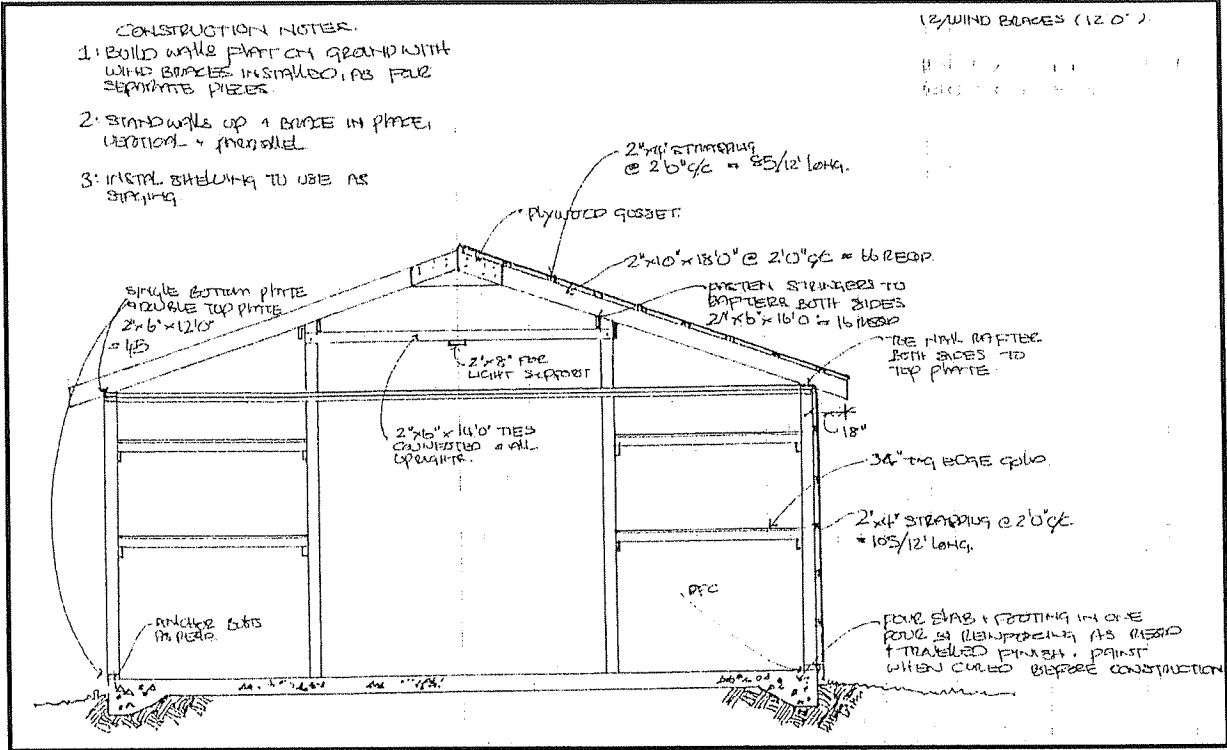 CONSTRUCTION NOTES.
1: BUILD WALLS FLAT ON GROUND WITH
WIND BRACES INSTALLED, AS FOUR
SEPARATE PIECES.
2: STAND WALLS UP + BRACE IN PLACE,
VERTICAL + PARALLEL
3: INSTAL SHELVING TO USE AS
STAGING
12/WIND BRACES (12'0").
2"x4" STRAPPING
@ 2'0" c/c = 85/12' LONG.
PLYWOOD GUSSET.
2"x10"x18'0" @ 2'0" c/c = 66 REQD.
FASTEN STRINGERS TO
RAFTERS BOTH SIDES
2"x6"x16'0 = 16 REQD
TOE NAIL RAFTER
BOTH SIDES TO
TOP PLATE
SINGLE BOTTOM PLATE
+ DOUBLE TOP PLATE
2"x6"x12'0"
= 45
2"x8" FOR
LIGHT SUPPORT
18"
2"x6"x14'0" TIES
CONNECTED @ ALL
UPRIGHTS.
3/4" T+G EDGE GOLD
2"x4" STRAPPING @ 2'0" c/c
= 105/12' LONG.
ANCHOR BOLTS
AS REQD.
POUR SLAB + FOOTING IN ONE
POUR REINFORCING AS REQD
+ TROWELED FINISH. PAINT
WHEN CURED BEFORE CONSTRUCTION